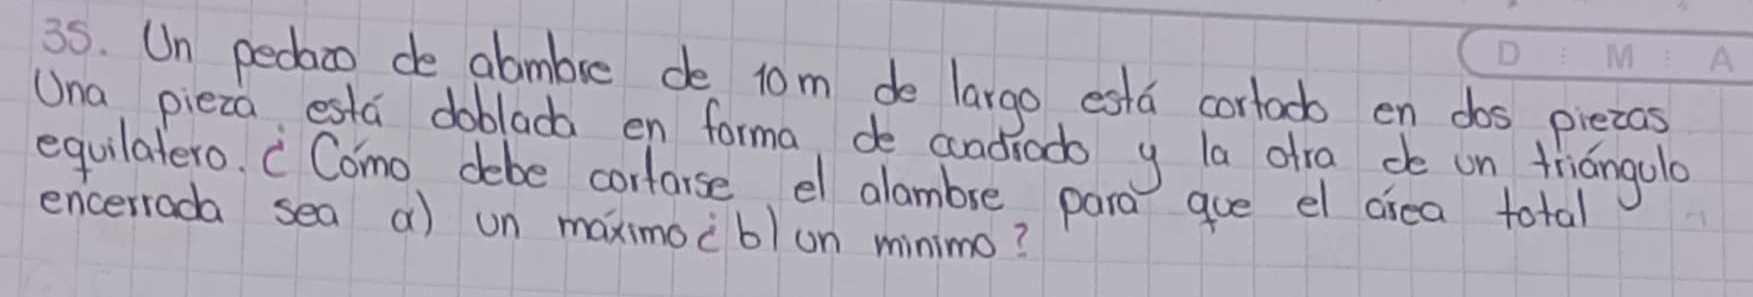 D : M : A
35. Un pedazo de alambre de 10m de largo está cortado en dos piezas
Una pieza está doblada en forma de cuadrado y la otra de un triángulo
equilatero. ¿Cómo debe cortarse el alambre para que el área total
encerrada sea a) un máximo ¿ b) un minimo?